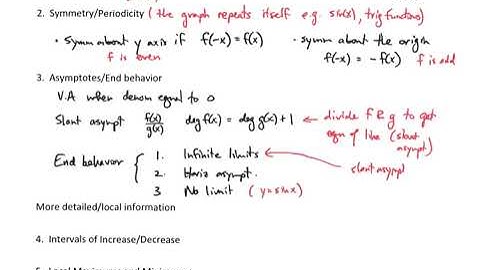 2. Symmetry/Periodicity (the graph repeats itself e.g. sin(x), trig functions)
• symm about y axis if f(-x) = f(x)
f is even
• symm about the origin
f(-x) = -f(x) f is odd
3. Asymptotes/End behavior
V.A when denom equal to 0
Slant asympt f(x)/g(x) deg f(x) = deg g(x)+1 ← divide f & g to get
eqn of line (slant
asympt)
End behavior { 1. Infinite limits ←
slant asympt
2. Horiz asympt.
3 No limit (y=sinx)
More detailed/local information
4. Intervals of Increase/Decrease